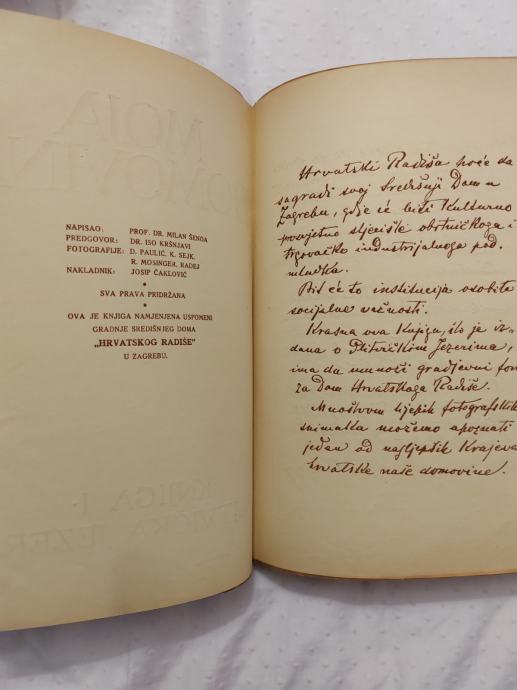 MOJA
DOMOVINA
NAPISAO: PROF. DR. MILAN ŠENOA
PREDGOVOR: DR. ISO KRŠNJAVI
FOTOGRAFIJE: D. PAULIĆ, K. SEJK,
R. MOSINGER, RADEJ
NAKLADNIK: JOSIP ČAKLOVIĆ
SVA PRAVA PRIDRŽANA
OVA JE KNJIGA NAMJENJENA USPOMENI
GRADNJE SREDIŠNJEG DOMA
„HRVATSKOG RADIŠE”
U ZAGREBU.
KNJIGA I.
PLITVIČKA JEZERA
Hrvatski Radiša hoće da
sagradi svoj Središnji Dom u
Zagrebu, gdje će biti Kulturno
prosvjetno stjecište obrtničkoga i
trgovačko industrijalnoga pod-
mlatka.
Bit će to institucija osobite
socijalne vrednosti.
Krasna ova Knjiga, što je iz-
dana o Plitvičkim Jezerima,
ima da umnoži gradjevni fon
za Dom Hrvatskoga Radiše.
Mnoštvom lijepih fotografskih
snimaka možemo upoznati
jedan od najljepših Krajeva
hrvatske naše domovine.